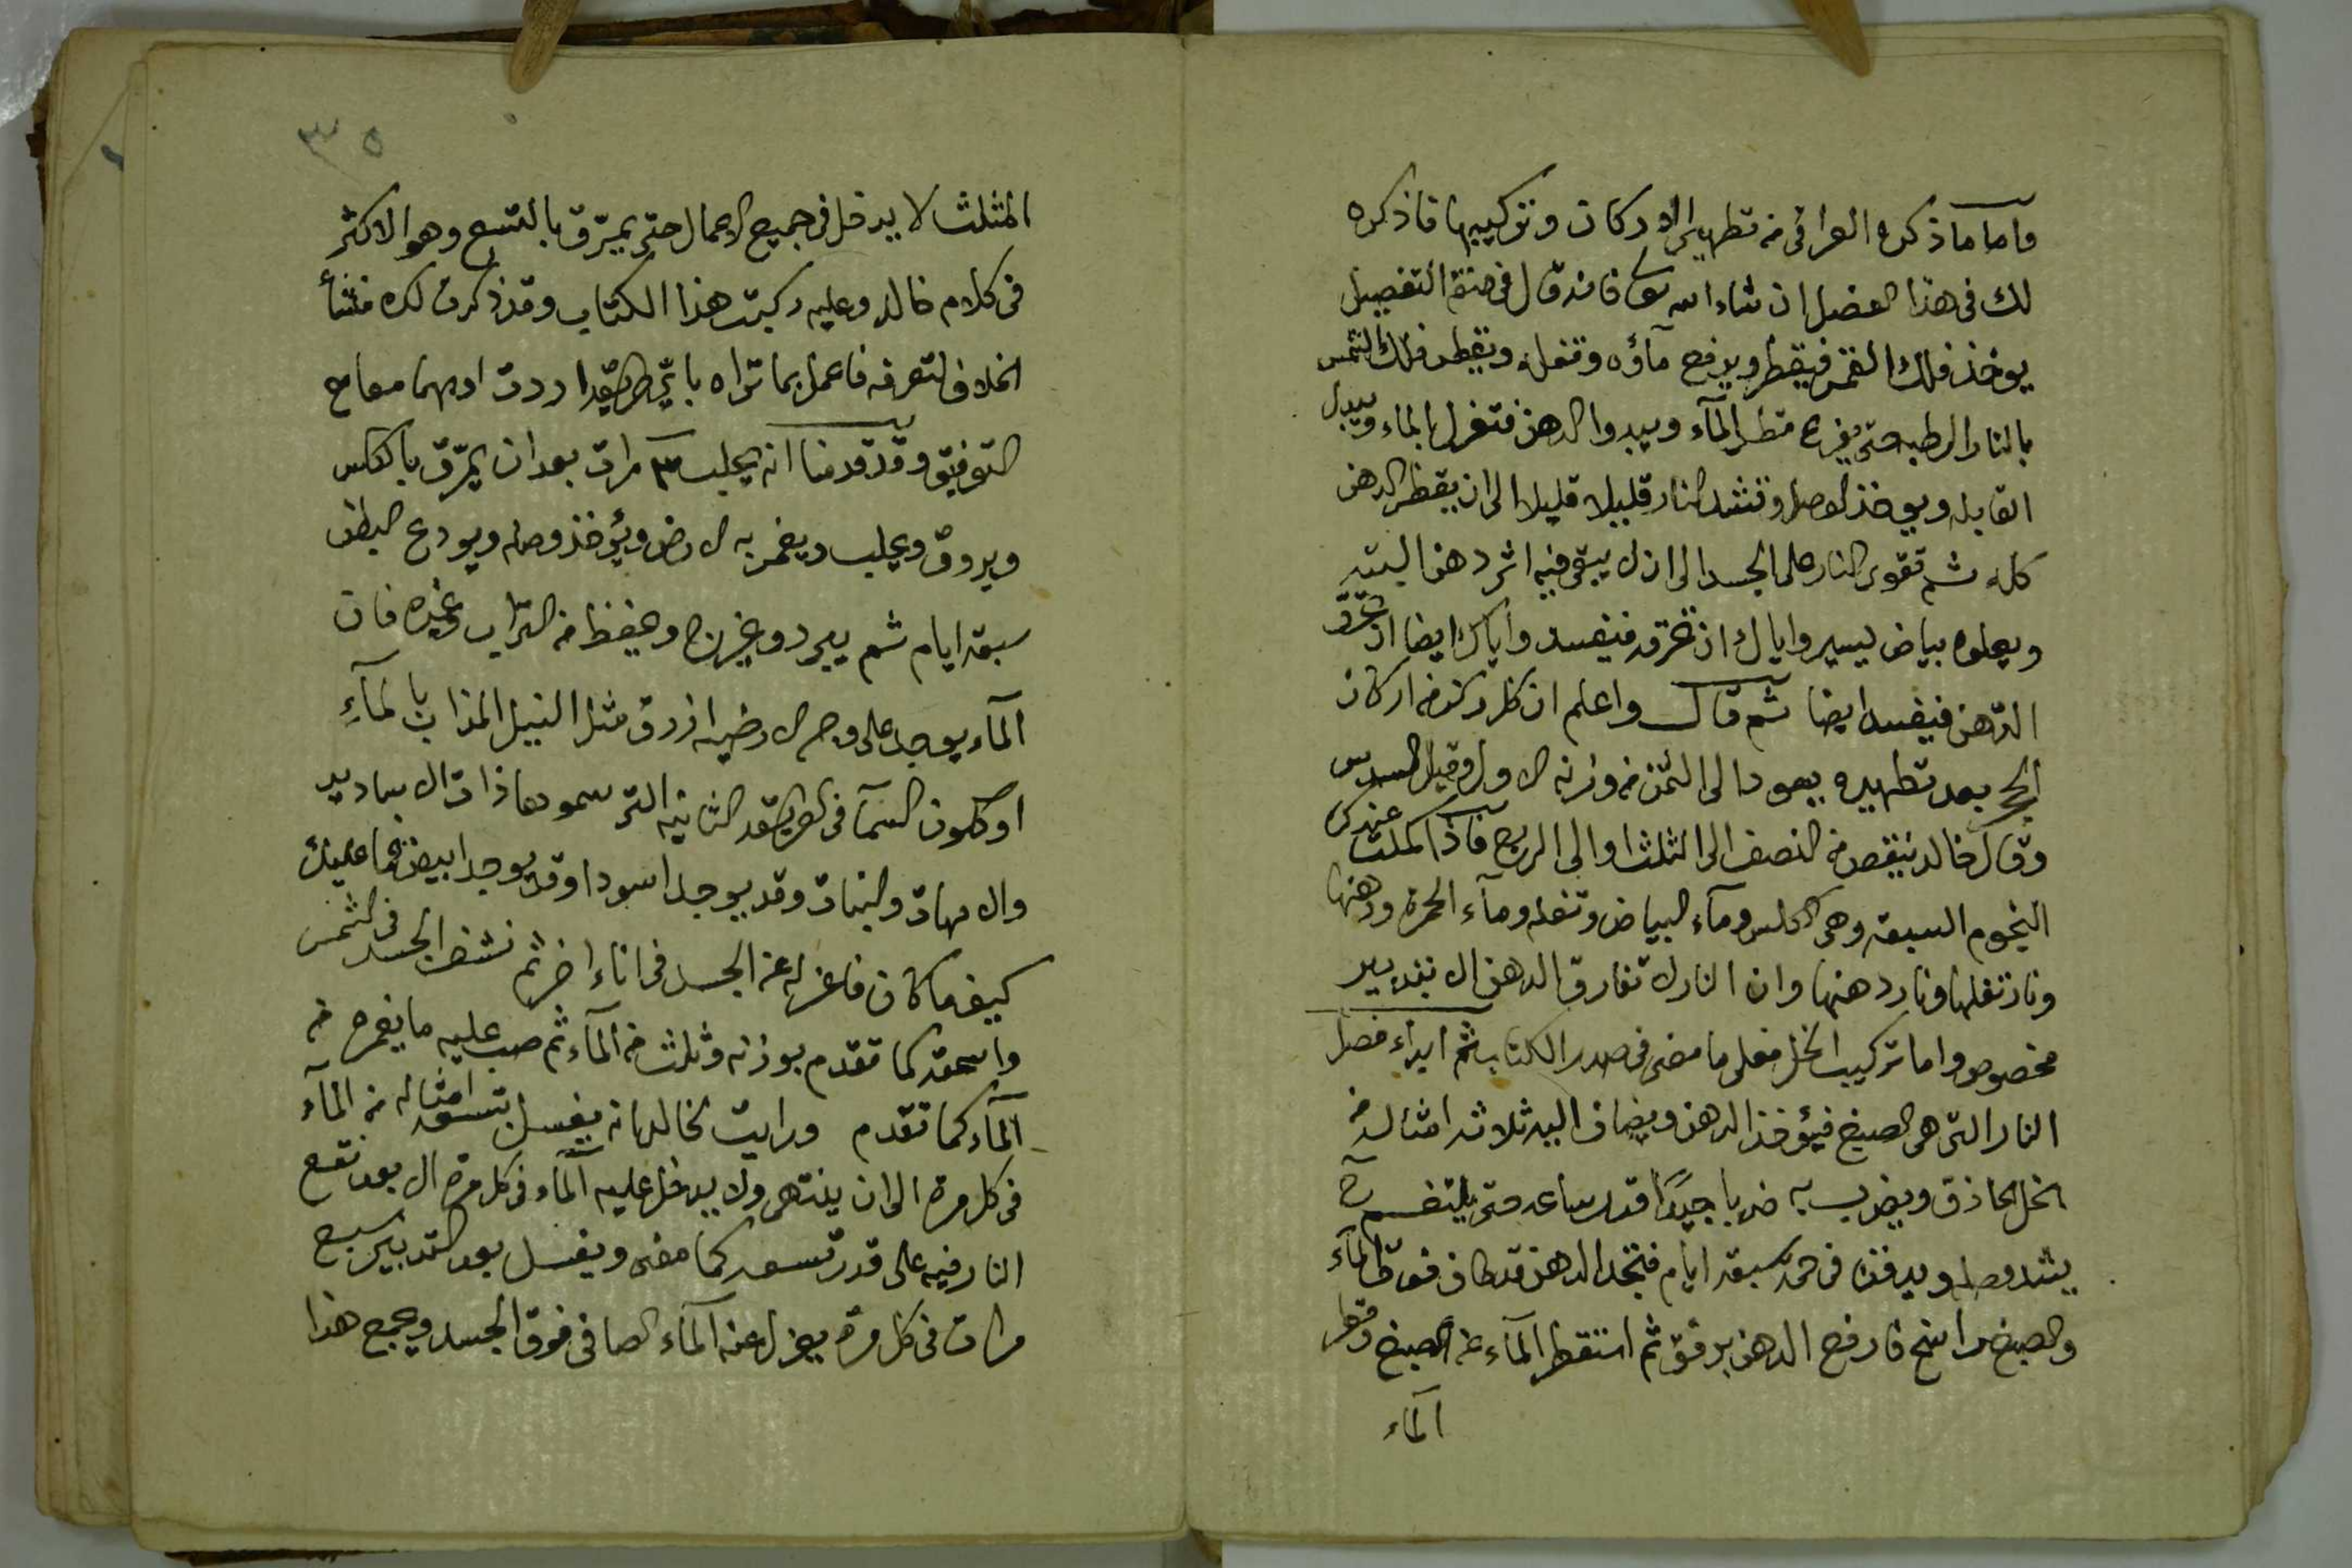 واما ما ذكره العراقى من تطهير الاركان وتركيبها فاذكره
لك فى هذا الفصل ان شاء الله تعالى فانه قال فى صفة التفصيل
يوخذ فلك القمر فيقطر ويرفع مآؤه وتفله ويقطر فلك الشمس
بالنار الرطبه حتى يفرغ قطر المآء ويبدوا الدهن فتعزل الماء ويبدل
القابله ويوخذ الوصل وتشد النار قليلا قليلا الى ان يقطر الدهن
كله ثم تقوى النار على الجسد الى ان لا يبقى فيه اثر دهن البته
ويعلوه بياض يسير واياك ان تحرقه فيفسد واياك ايضا ان تحرق
الدهن فيفسد ايضا ثم قال واعلم ان كل ركن من اركان
الحجر بعد تطهيره يعود الى الثمن من وزنه الاول وقيل السدس
وقال خالد ينقص من النصف الى الثلث او الى الربع فاذا كملت عندك
النجوم السبعه وهى الكلس ومآء البياض وتفله ومآء الحمرة ودهنها
ونار تفلها ونار دهنها وان النار لا تفارق الدهن الا بتدبير
مخصوص واما تركيب الخل فعلى ما مضى فى صدر الكتاب ثم ابداء فصل
النار التى هى الصبغ فيؤخذ الدهن ويضاف اليه ثلاثه امثاله من
الخل الحاذق ويضرب به ضربا جيدًا قدر ساعه حتى يلتغم
يشد وصله ويدفن فى حمة سبعة ايام فتجد الدهن قد طاف فوق المآء
والصبغ راسخ فارفع الدهن برفق ثم استقطر المآء عن الصبغ وقطر
المآء
٣٥
المثلث لا يدخل فى جميع الاعمال حتى يمزق بالتسع وهو الاكثر
فى كلام خالد وعليه ركبت هذا الكتاب وقد ذكرت لك منشأ
الخلاف لتعرفه فاعمل بما تراه باى طريقه اردت ادبهما معا مع
التوفيق وقد قدمنا انه يحلب ٣ مرات بعد ان يمزق بالكلس
ويروق ويحلب ويغمر به الارض ويؤخذ وصله ويودع البطن
سبعه ايام ثم يبرد ويخرج ويحفظ من التراب وغيره فان
المآء يوجد على وجه الارضيه ازرق مثل النيل المذاب بالمآء
او كلون السمآ فى الطريقه الثانيه التى سموها ذات الا بيادير
والامهات والنبات وقد يوجد اسود او قد يوجد ابيض فما عليك
كيف ما كان فاعزله عن الجسد فى اناء اخر ثم نشف الجسد فى الشمس
واسحقه كما تقدم بوزنه وثلث من المآء ثم صب عليه ما يغمره من
المآء كما تقدم ورايت لخالد انه يغسل بتسعه امثاله من المآء
فى كل مرة الى ان ينتهى ولا يدخل عليه المآء فى كل مرة الا بعد نقع
النار فيه على قدر تسعه كما مضى ويغسل بعد التدبير سبع
مرات فى كل مرة يعزل عنه المآء الصافى فوق الجسد ويجمع هذا